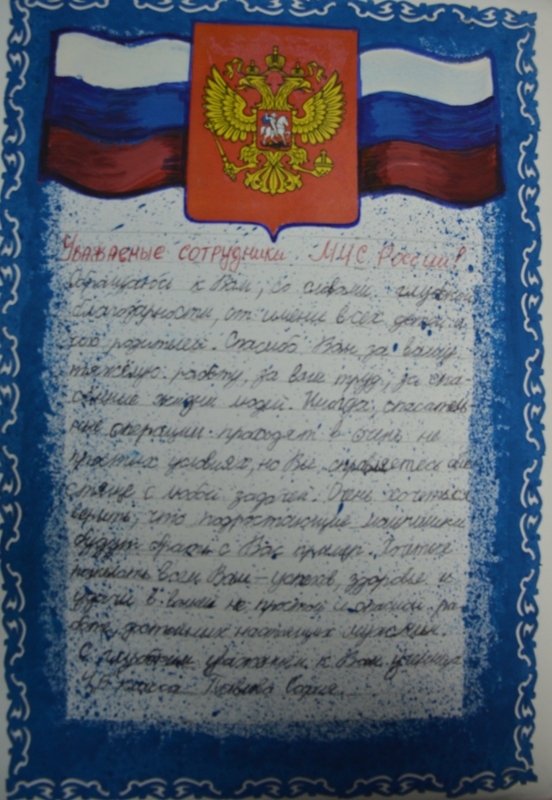 Уважаемые сотрудники МЧС России!
Обращаюсь к Вам, со словами глубокой
благодарности, от имени всех детей и
родителей. Спасибо Вам за вашу
тяжёлую работу, за ваш труд, за спа-
сённые жизни людей. Иногда, спасатель
ные операции проходят в очень не
простых условиях, но Вы справляетесь
с любой задачей. Очень хочиться
верить, что подростающие мальчишки
будут брать с Вас пример. Хотите
пожелать всем Вам – успехов, здоровье и
удачи в вашей не простой и опасной ра-
боте, достойных настоящих мужчин.
С глубоким уважением к Вам ученица
класса София